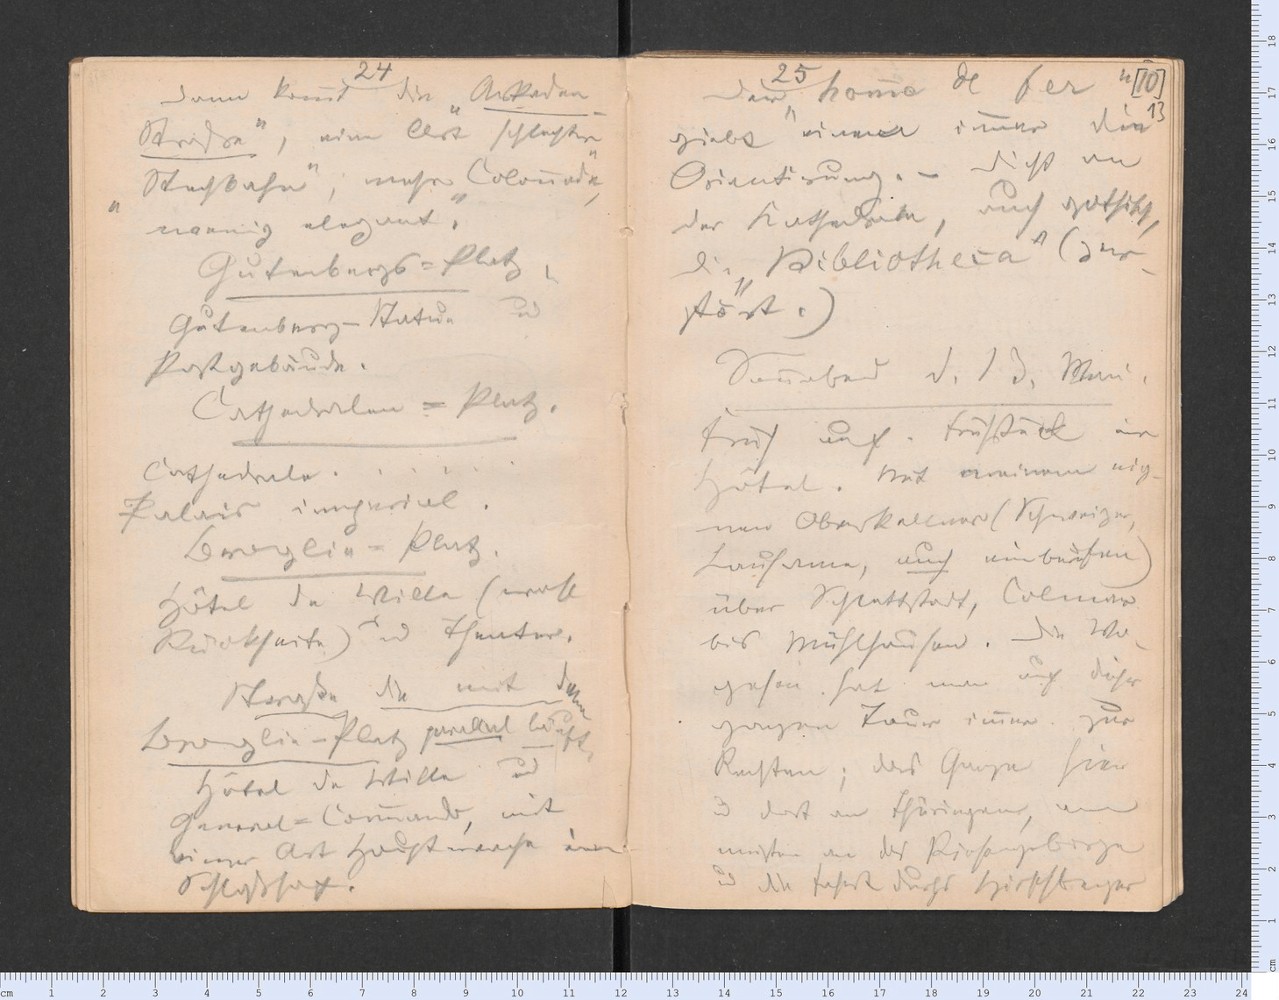 24
Dann komt die „Arkaden-
Straße", eine Art schlechter
Stechbahn", mehr Colonade,
wenig elegant.
Gutenbergs-Platz,
Gutenberg-Statue u
Postgebäude.
Cathedralen-Platz.
Cathedrale. . . . . .
Palais imperial.
Broglie-Platz.
Hôtel de Ville (wohl
Rückseite) u Theater.
Straße die mit dem
Broglie-Platz parallel läuft,
Hôtel de Ville u
General-Comando, mit
einer Art Hauptwache im
Schloßhof.
25
[10]
13
Der „homme de fer"
giebt einem immer die
Orientirung. – Dicht an
der Kathedrale, auch gothisch,
die „Bibliotheca" (zer-
stört.)
Sonnabend d. 13. Mai.
Früh auf. Frühstück im
Hôtel. Mit meinem
Oberkellner (Schweizer,
Lausanne, auch
über Schlettstadt, Colmar
bis Mühlhausen. Die Vo-
gesen hat man auf dieser
ganzen Tour immer zur
Rechten; das Ganze hier
u dort an Thüringen, am
meisten an das Riesengebirge
u die Fahrt durchs Hirschberger